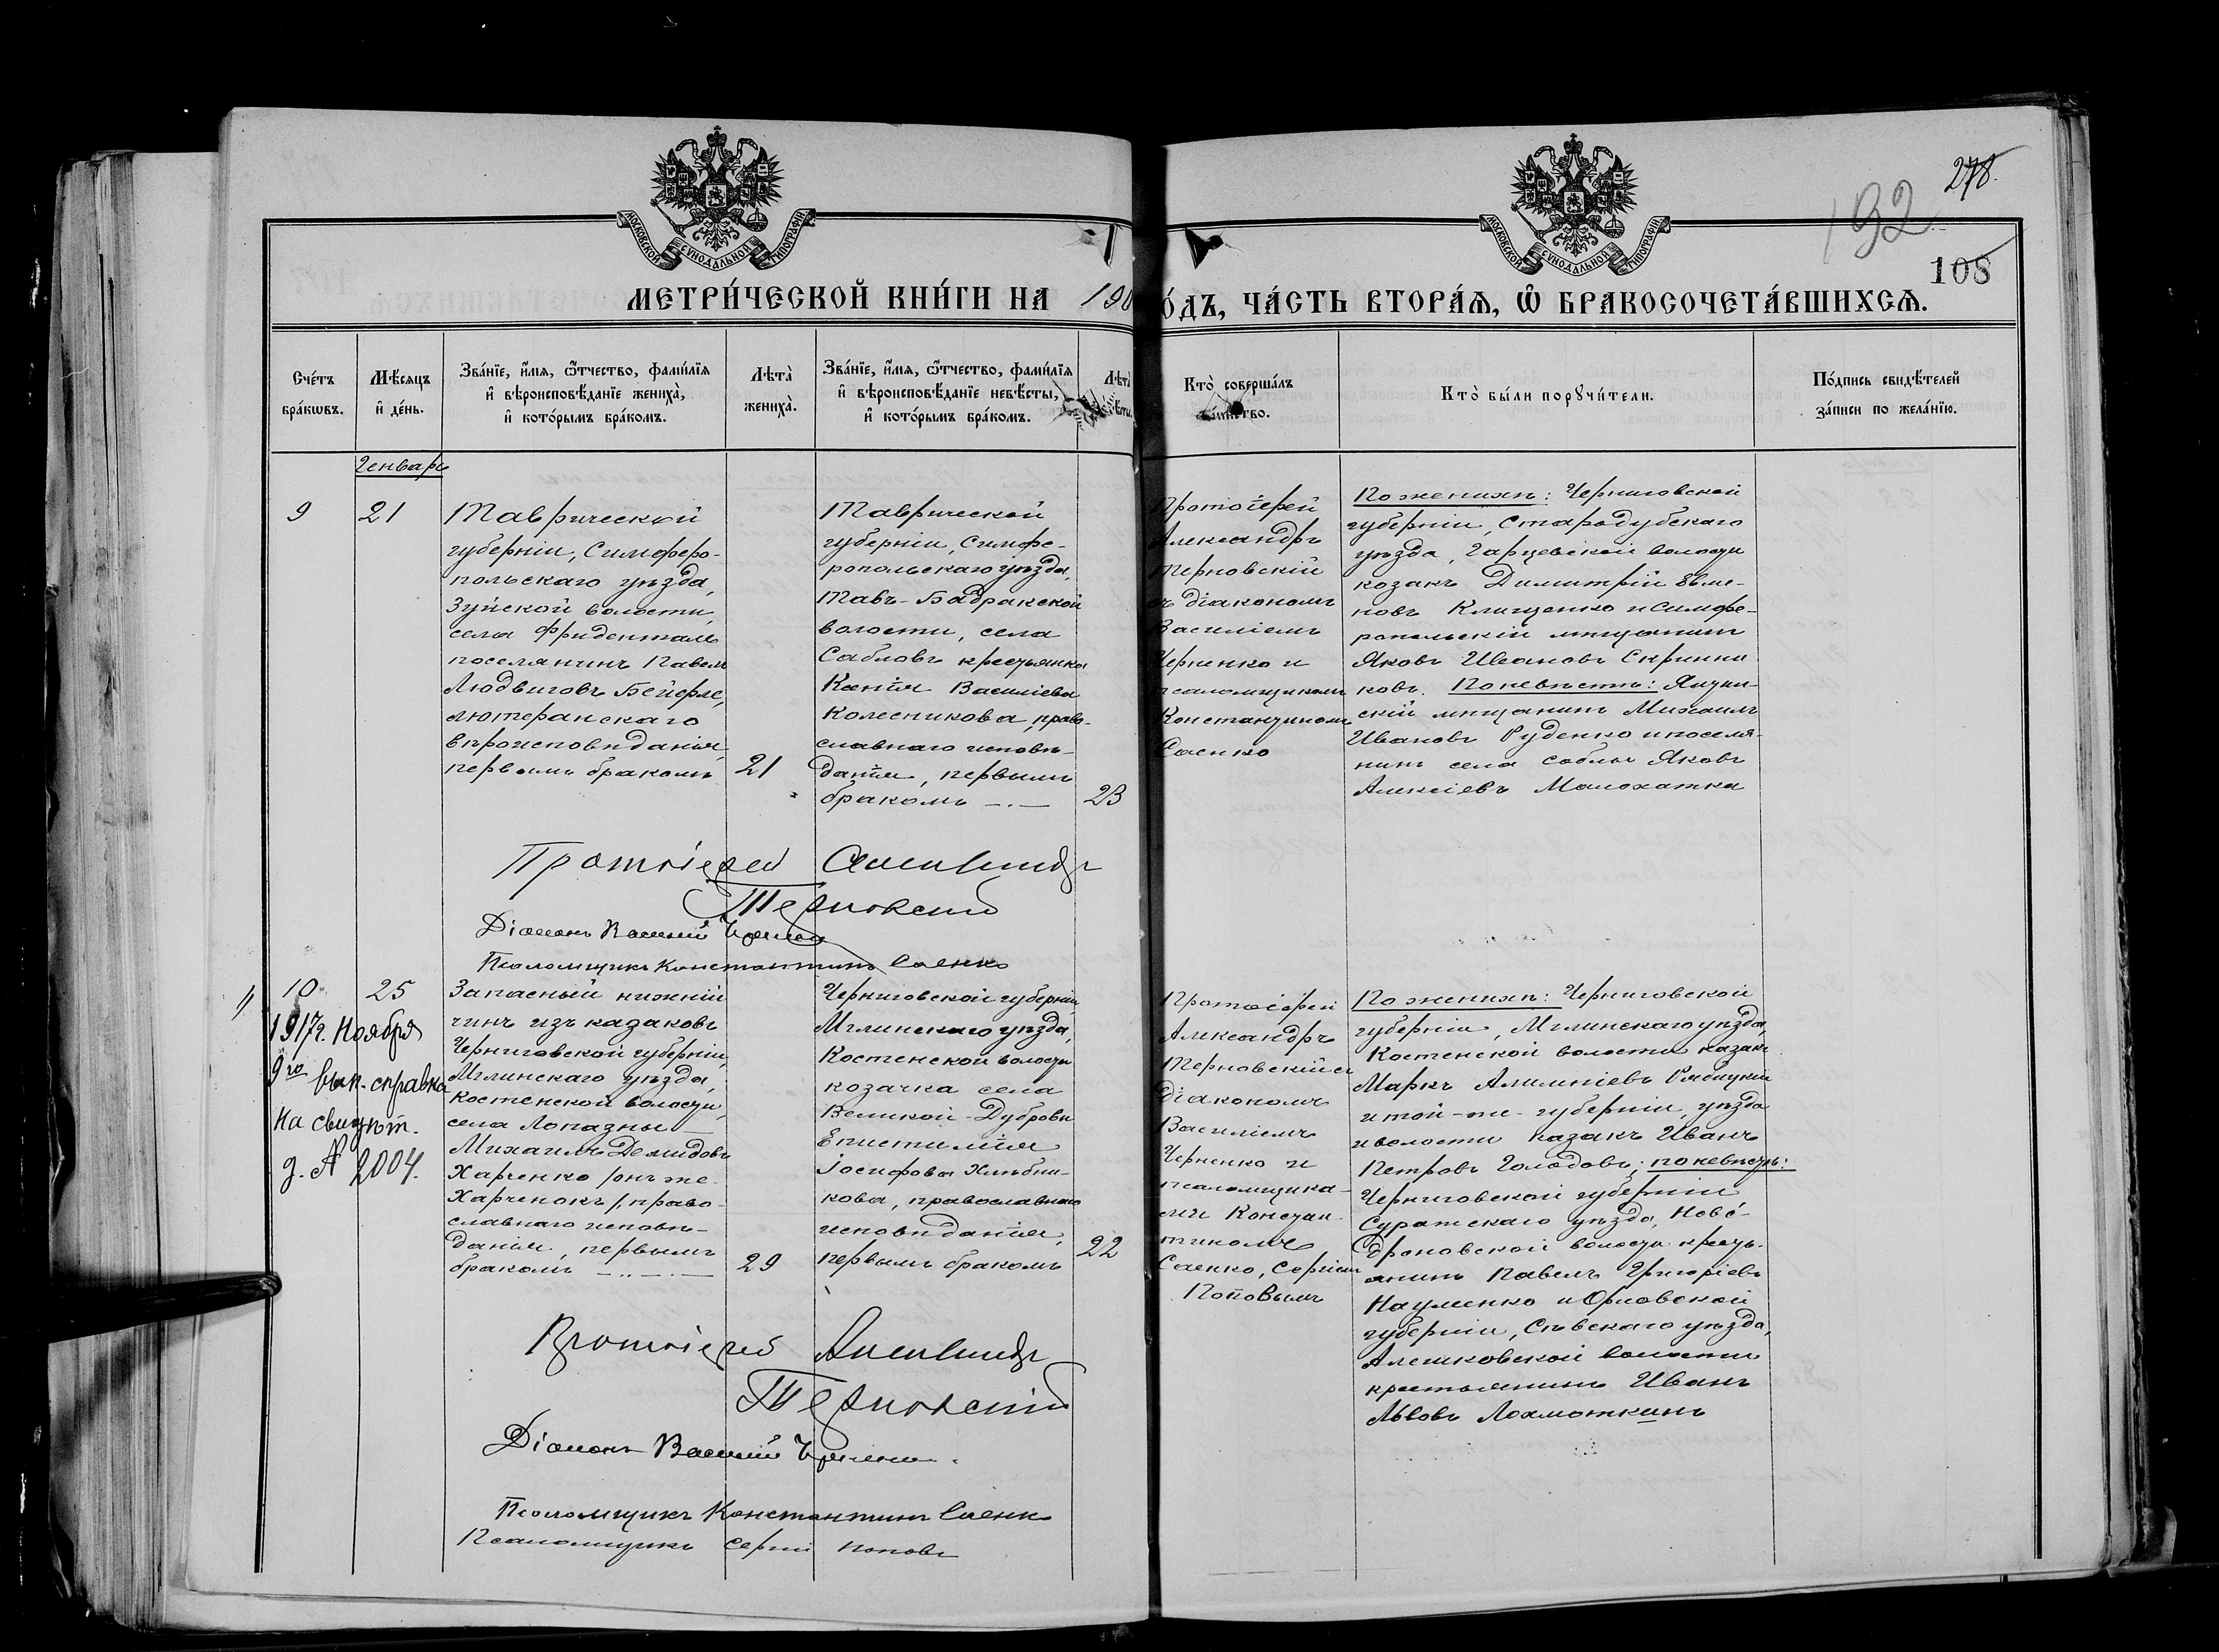 МОСКОВСКОЙ СѴНОДАЛЬНОЙ ТИПОГРАФІИ
МОСКОВСКОЙ СѴНОДАЛЬНОЙ ТИПОГРАФІИ
278.
192
108
МЕТРИ́ЧЕСКОЙ КНИ́ГИ НА 190
ÓДЪ, ЧА́СТЬ ВТОРА́Ѧ, Ѡ҆ БРАКОСОЧЕТА́ВШИХСѦ.
Сче́тъ бра́кѡвъ.
Мѣ́сяцъ и҆ де́нь.
Зва́нїе, и҆́мѧ, ѻ҆́тчество, фами́лїѧ
и҆ вѣроисповѣ́данїе жениха̀,
и҆ кото́рымъ бра́комъ.
Лѣта̀ жениха̀.
Зва́нїе, и҆́мѧ, ѻ҆́тчество, фами́лїѧ
и҆ вѣроисповѣ́данїе невѣ́сты,
и҆ кото́рымъ бра́комъ.
Лѣта̀
Кто̀ соверша́лъ
Кто̀ бы́ли порꙋчи́тели.
По́дпись свидѣ́телей
за́писи по жела́нїю.
Генварь
9
21
Таврической
губерніи, Симферо-
польскаго уѣзда,
Зуйской волости,
села Фриденталь
поселянинъ Павелъ
Людвиговъ Бейфле,
лютеранскаго
вѣроисповѣданія,
первымъ бракомъ
21
Таврической
губерніи, Симфе-
ропольскаго уѣзда,
Тавъ-Бадракской
волости, села
Сабловъ крестьянка
Ксенія Василіева
Колесникова, право-
славнаго исповѣ-
данія, первымъ
бракомъ
23
Протоіерей
Александръ
Терновскій
съ діакономъ
Василіемъ
Черненко и
псаломщикомъ
Константиномъ
Саенко
По женихѣ: Черниговской
губерніи, Стародубскаго
уѣзда, Гарцевской волости
козакъ Димитрій
новъ Клищенко и Симфе-
ропольскій мѣщанинъ
Яковъ Ивановъ Скринни
ковъ. По невѣстѣ:
скій мѣщанинъ Михаилъ
Ивановъ Руденко и поселя-
нинъ села Саблы Яковъ
Алексіевъ Малохатка
Протоіерей Александръ
Терновский
Діаконъ Василій Черненко
Псаломщикъ Константинъ Саенко
10
25
1917 г. Ноября
9го вып. справка
на свидѣт.
з. № 2004.
Запасный нижній
чинъ изъ казаковъ
Черниговской губерніи,
Мглинскаго уѣзда,
Костенской волости,
села Лопазны
Михаилъ Демидовъ
Харченко /онъ же
Харченокъ/, право-
славнаго исповѣ-
данія, первымъ
бракомъ
29
Черниговской губерніи,
Мглинскаго уѣзда,
Костенской волости
козачка села
Великой-Дубровы
Епистимія
Іосифова Хлѣбни-
кова, православнаго
исповѣданія,
первымъ бракомъ
22
Протоіерей
Александръ
Терновскій съ
діакономъ
Василіемъ
Черненко и
псаломщика-
ми Констан-
тиномъ
Саенко, Сергіемъ
Поповымъ
По женихѣ: Черниговской
губерніи, Мглинскаго уѣзда,
Костенской волости казакъ
Маркъ Алимпіевъ Рябицкій
и той-же губерніи, уѣзда
и волости казакъ Иванъ
Петровъ Голодовъ; по невѣстѣ:
Черниговской губерніи
Суражскаго уѣзда, Ново-
дроковской волости кресть-
янинъ Павелъ Григоріевъ
Науменко и Орловской
губерніи, Сѣвскаго уѣзда,
Алешковской волости
крестьянинъ Иванъ
Львовъ Лохмоткинъ
Протоіерей Александръ
Терновский
Діаконъ Василій Черненко.
Псаломщикъ Константинъ Саенко
Псаломщикъ Сергій Поповъ